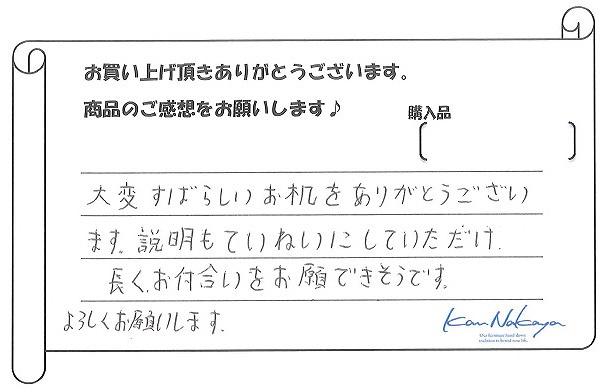 お買い上げ頂きありがとうございます。
商品のご感想をお願いします♪
購入品
大変すばらしいお机をありがとうござい
ます。説明もていねいにしていただけ、
長く、お付合いをお願できそうです。
よろしくお願いします。
Kan Nakaya